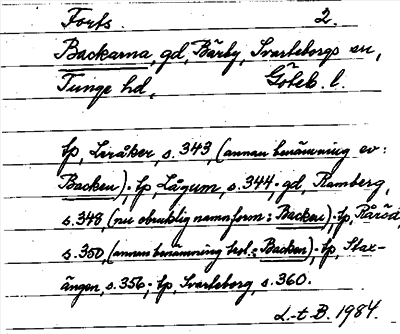 Forts. 2.
Backarna, gd, Bärby, Svarteborgs sn,
Tunge hd, Göteb. l.
tp, Leråker, s. 343, (annan benämning ev:
Backen) · tp, Lågum, s. 344 · gd, Ramberg,
s. 348, (nu obruklig namnform: Backen) · tp, Råröd,
s. 350, (annan benämning trol.: Backen) · tp, Stax-
ängen, s. 356 · tp, Svarteborg, s. 360.
L-t. B. 1984.